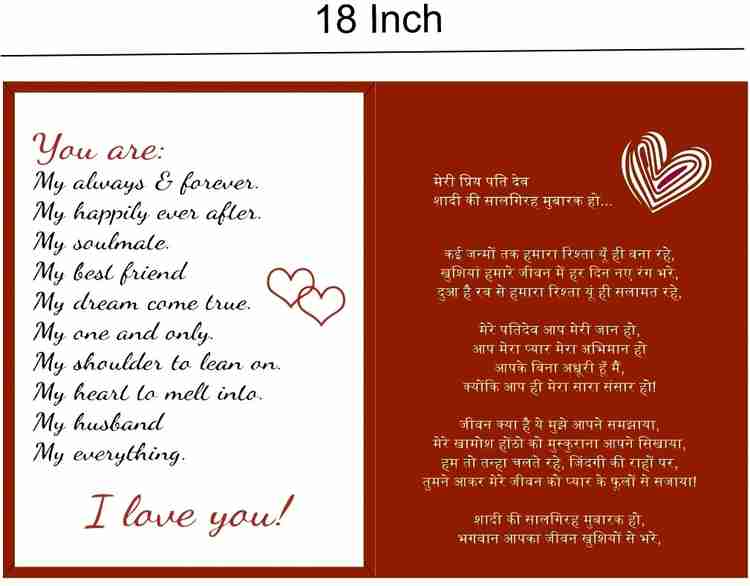 18 Inch
You are:
My always & forever.
My happily ever after.
My soulmate.
My best friend
My dream come true.
My one and only.
My shoulder to lean on.
My heart to melt into.
My husband
My everything.
I love you!
मेरी प्रिय पति देव
शादी की सालगिरह मुबारक हो...
कई जन्मों तक हमारा रिश्ता यूँ ही बना रहे,
खुशियां हमारे जीवन में हर दिन नए रंग भरे,
दुआ है रब से हमारा रिश्ता यूं ही सलामत रहे,
मेरे पतिदेव आप मेरी जान हो,
आप मेरा प्यार मेरा अभिमान हो
आपके बिना अधूरी हूँ मैं,
क्योंकि आप ही मेरा सारा संसार हो!
जीवन क्या है ये मुझे आपने समझाया,
मेरे खामोश होंठो को मुस्कुराना आपने सिखाया,
हम तो तन्हा चलते रहे, जिंदगी की राहों पर,
तुमने आकर मेरे जीवन को प्यार के फूलों से सजाया!
शादी की सालगिरह मुबारक हो,
भगवान आपका जीवन खुशियों से भरे,